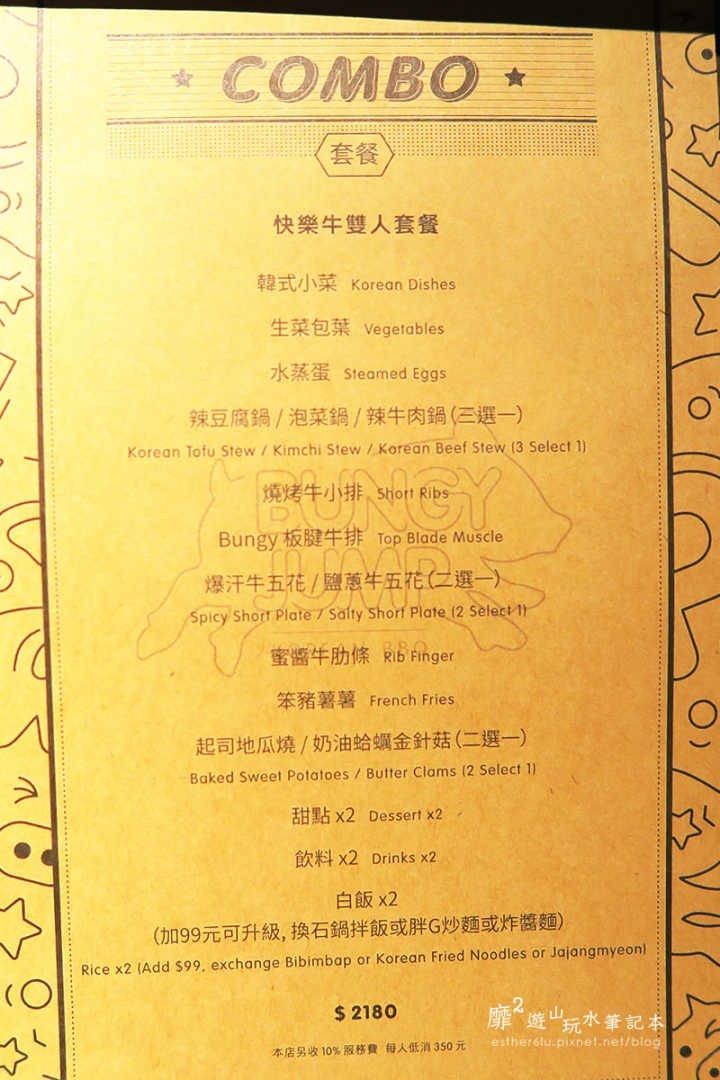 COMBO
套餐
快樂牛雙人套餐
韓式小菜 Korean Dishes
生菜包葉 Vegetables
水蒸蛋 Steamed Eggs
辣豆腐鍋 / 泡菜鍋 / 辣牛肉鍋 (三選一)
Korean Tofu Stew / Kimchi Stew / Korean Beef Stew (3 Select 1)
燒烤牛小排 Short Ribs
BUNGY
Bungy 板腱牛排 Top Blade Muscle
JUMP
爆汗牛五花 / 鹽蔥牛五花 (二選一)
Spicy Short Plate / Salty Short Plate (2 Select 1)
蜜醬牛肋條 Rib Finger
笨豬薯薯 French Fries
起司地瓜燒 / 奶油蛤蠣金針菇 (二選一)
Baked Sweet Potatoes / Butter Clams (2 Select 1)
甜點 x2 Dessert x2
飲料 x2 Drinks x2
白飯 x2
(加99元可升級, 換石鍋拌飯或胖G炒麵或炸醬麵)
Rice x2 (Add $99, exchange Bibimbap or Korean Fried Noodles or Jajangmyeon)
$ 2180
本店另收 10% 服務費 每人低消 350 元
靡2遊山玩水筆記本
esther61u.pixnet.net/blog